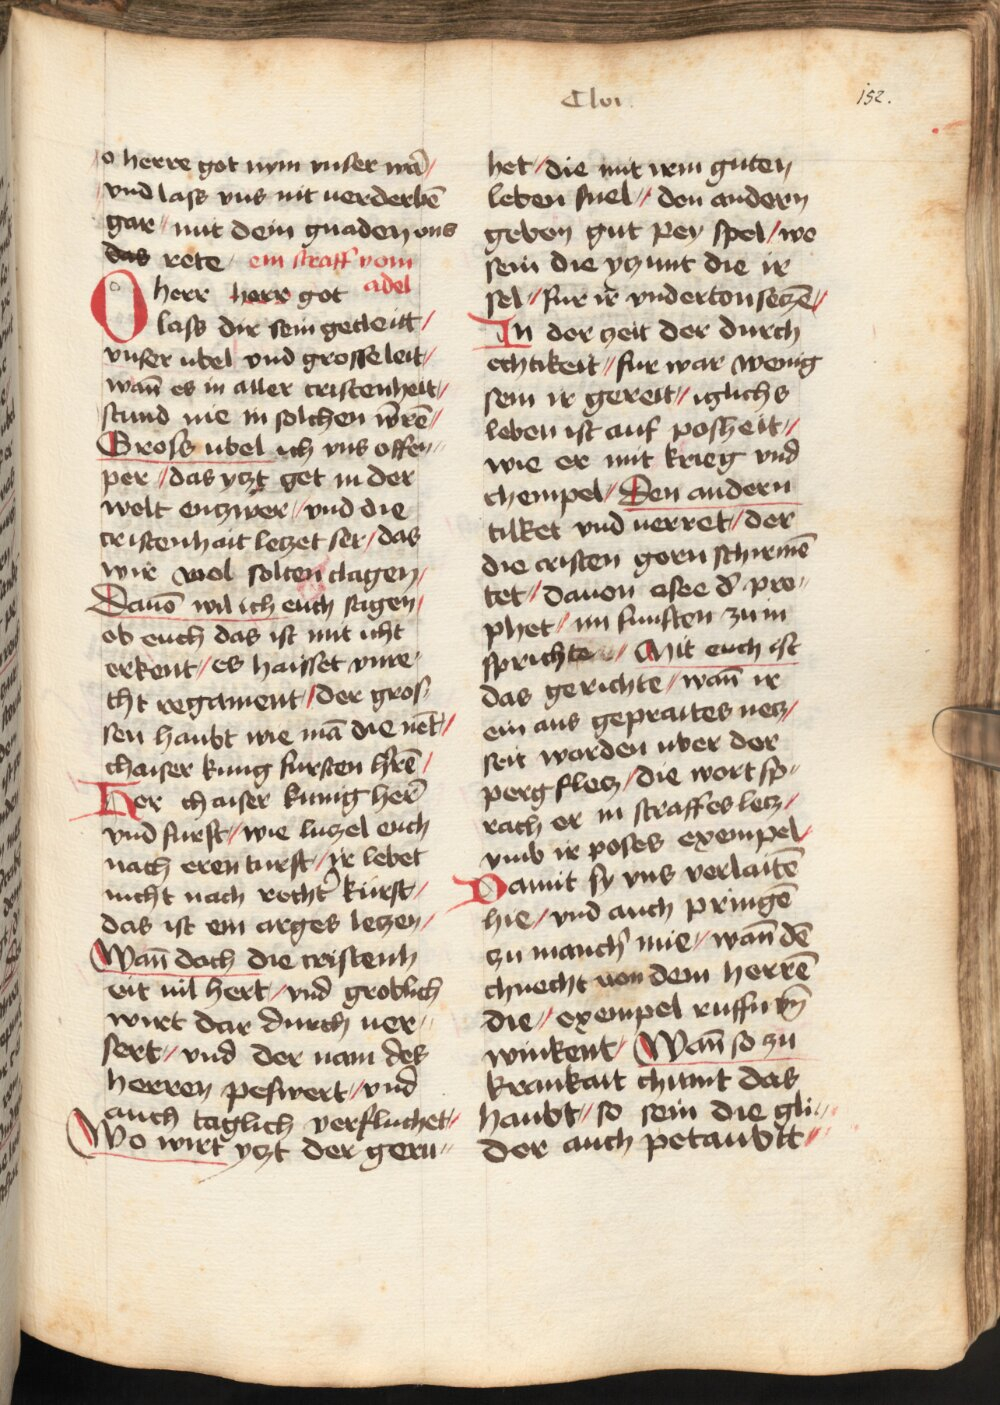 Clvi
152.
o herre got nym vnser wā /
vnd lass vns nit uerderbē
gar // mit dein gnaden ons
das rete / ein straff vom
adel
O herr herr got
lass dir sein gecleitt /
vnser ubel vnd grosse leit //
wañ es in aller cristenheit //
stund nie in solchen w̄rē //
Gross ubel ich vns offen //
per // das yczt get in der
welt enczwer // vnd die
cristenhait leczet ser / das
wir wol solten clagen /
Dauō wil ich euch sagen /
ob euch das ist mit icht
erkent / es haisset vnre-
cht regament / der gros-
sen haubt wie mā die nēt //
chaiser kung fursten h̄rē /
Her chaiser kunig herr̄
vnd furst // wie luczel euch
nach eren turst // ir lebet
nicht nach recht' kürst /
das ist ein arges leczen /
Wañ doch die cristenh
eit uil hert / vnd groblich
wirt dar durch uer //
sert // vnd der nam des
herren peswert // vnd
auch taglich verfluchet //
Wo wirt yczt der geru //
het / die mit irm guten
leben snel // den andern
geben gut pey spel / wo
sein die yczunt die ir
sel // fur ir vnderton seczē /
In der zeit der durch
echtikeit // fur war wenig
sein ir gereit // iglichs
leben ist auf posheit //
wie er mit krieg vnd
chempel / Den andern
tilket vnd uerret / der
die cristen gern schirmē
tet / dauon osee d' pro //
phet / im funften zum
sprichte // Mit euch ist
das gerichte / wañ ir
ein aus gepraites necz /
seit worden uber der
perg flecz / die wort sp //
rach er in straffes lecz /
vmb ir poses exempel /
Damit sy vns verlaitē
hie / vnd auch pringē
zu manch' mie // wañ dē
chnecht von dem herrē
die // exempel ruffn vn̄
winkent / Wañ so zu
krankait chumt das
haubt // so sein die gli //
der auch petaubtt //